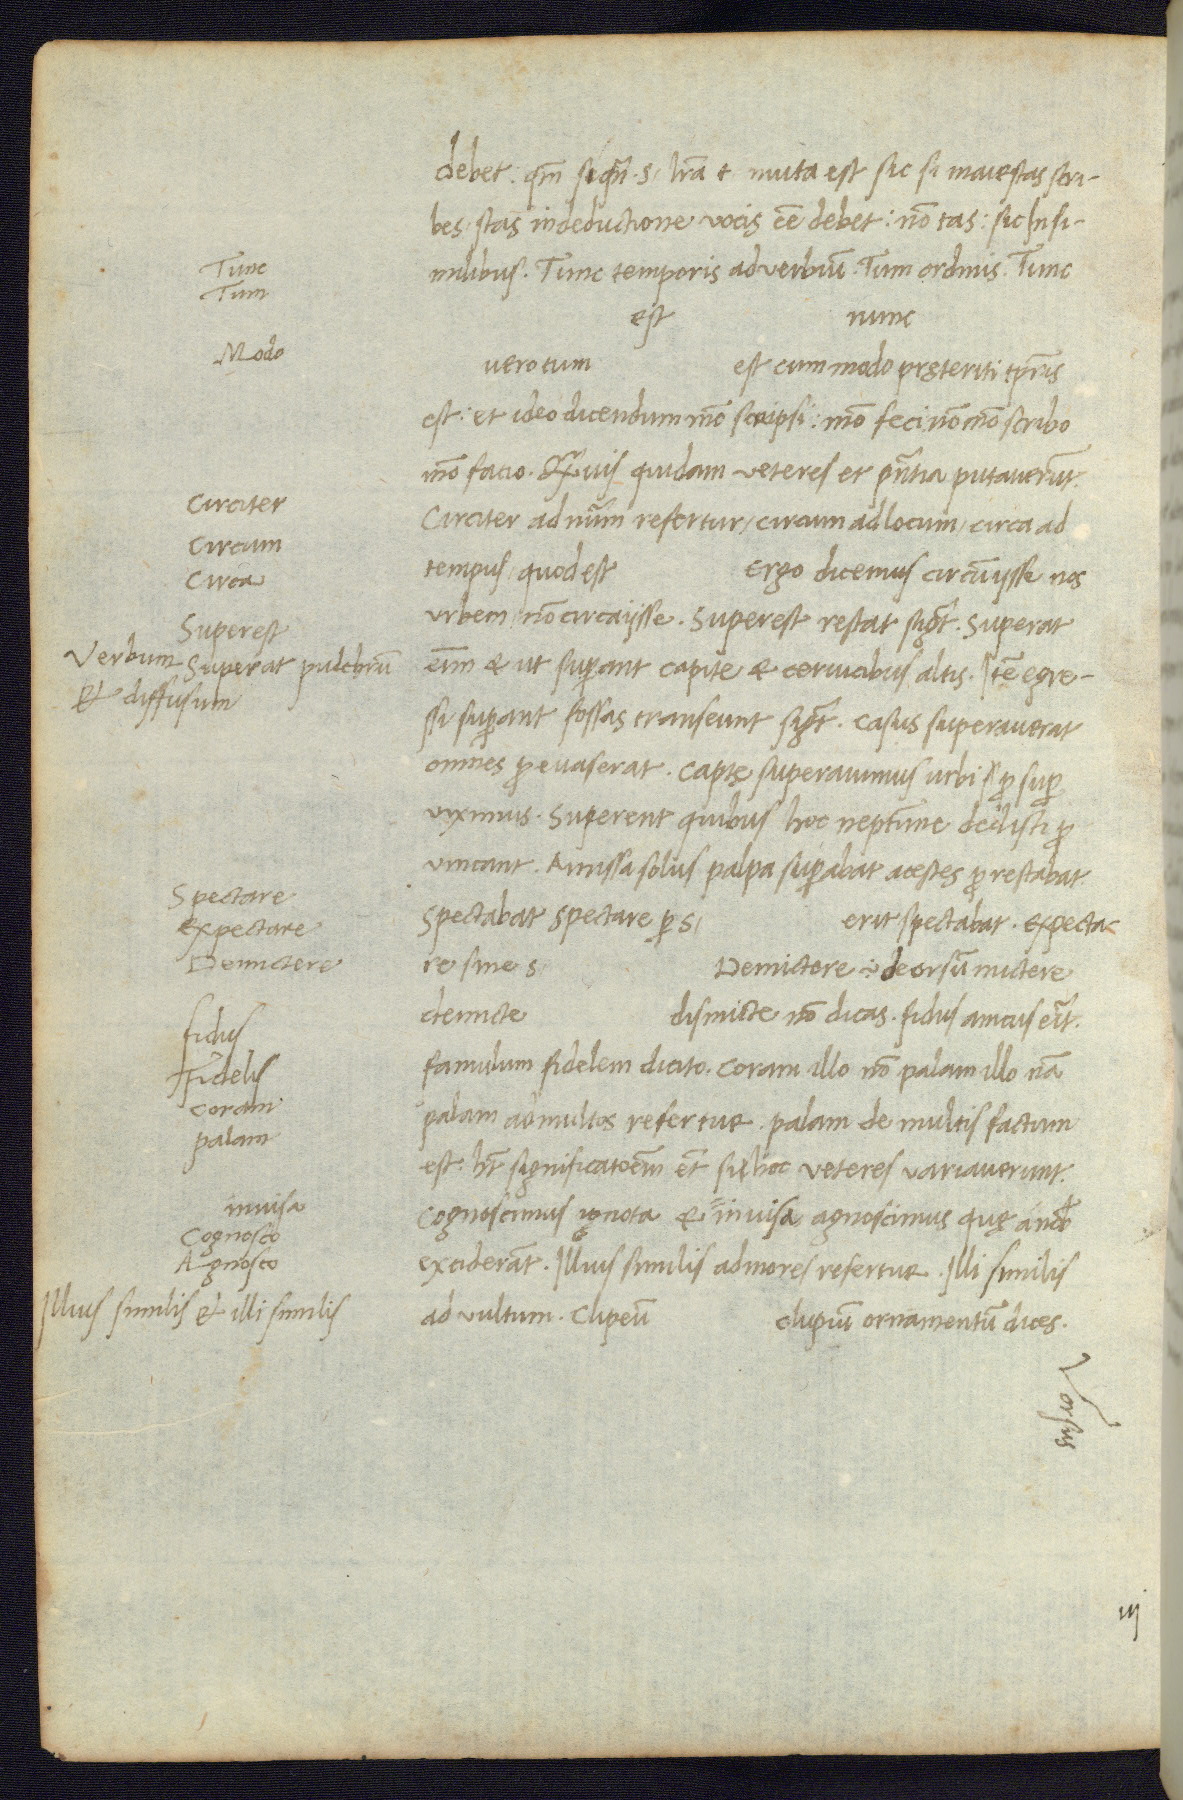 debet: qm̄ siqñ s, lr̄a t muta est sic si maiestas scri-
bes stas indeductione vocis eē debet: nō tas: sic In si-
milibus. Tunc temporis adverbiū. Tum ordinis. Tunc
est nunc
vero tum est cum modo pręteriti tp̄ris
est: et ideo dicendum mō scripsi: mō feci nō mō scribo
mō facio. Q̄vis quidam veteres et p̄ntia putaverūt.
Circiter ad nūm refertur, circum ad locum, circa ad
tempus, quod est Ergo dicemus circūijsse nos
vrbem, nō circaijsse. Superest restat sigt̄. Superat
eīm & ut sup̄ant capite & cervicibus altis. Itē egre-
ssi sup̄ant fossas transeunt sigt̄. Casus superaverat
omnes ꝓ evaserat. Captę superavimus urbi ꝓ sup̄
viximus. Superent quibus hoc neptūne dedisti ꝓ
vincant. Amissa solus palpa sup̄abat acestes ꝓ restabat.
Spectabat spectare ꝑ s, erit spectabat. Expecta-
re sine s Demictere ÷ deorsū mictere
demicte dismicte nō dicas. fidus amicus erit̄.
famulum fidelem dicito. Coram illo nō palam illo nā
palam ad multos refertur. palam de multis factum
est. hr̄ significatoēm et̄ si hoc veteres variaverunt.
Cognoscimus ignota & invisa agnoscimus quę
exciderāt. Illius similis ad mores refertur. Illi similis
ad vultum. Clipeū clupiū ornamentū dices.
Tunc
Tum
Modo
Circiter
Circum
Circa
Superest
Verbum Superat pulchrū
& diffusum
Spectare
Expectare
Demictere
fidus
Fidelis
Coram
palam
invisa
Cognosco
Agnosco
Illius similis & illi similis
Vorsus
iij